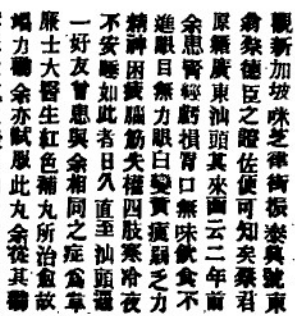 觀新加坡咪芝律街振泰興號東
翁蔡德臣之證佐便可知矣蔡君
原籍廣東汕頭其來函云二年前
余患腎經虧損胃口無味飲食不
進眼目無力眼白變黃痩弱乏力
精神困疲腦筋失權四肢寒冷夜
不安睡如此者日久直至汕頭遇
一好友曾患與余相同之症爲韋
廉士大醫生紅色補丸所治愈故
竭力勸余亦試服此丸余從其勸